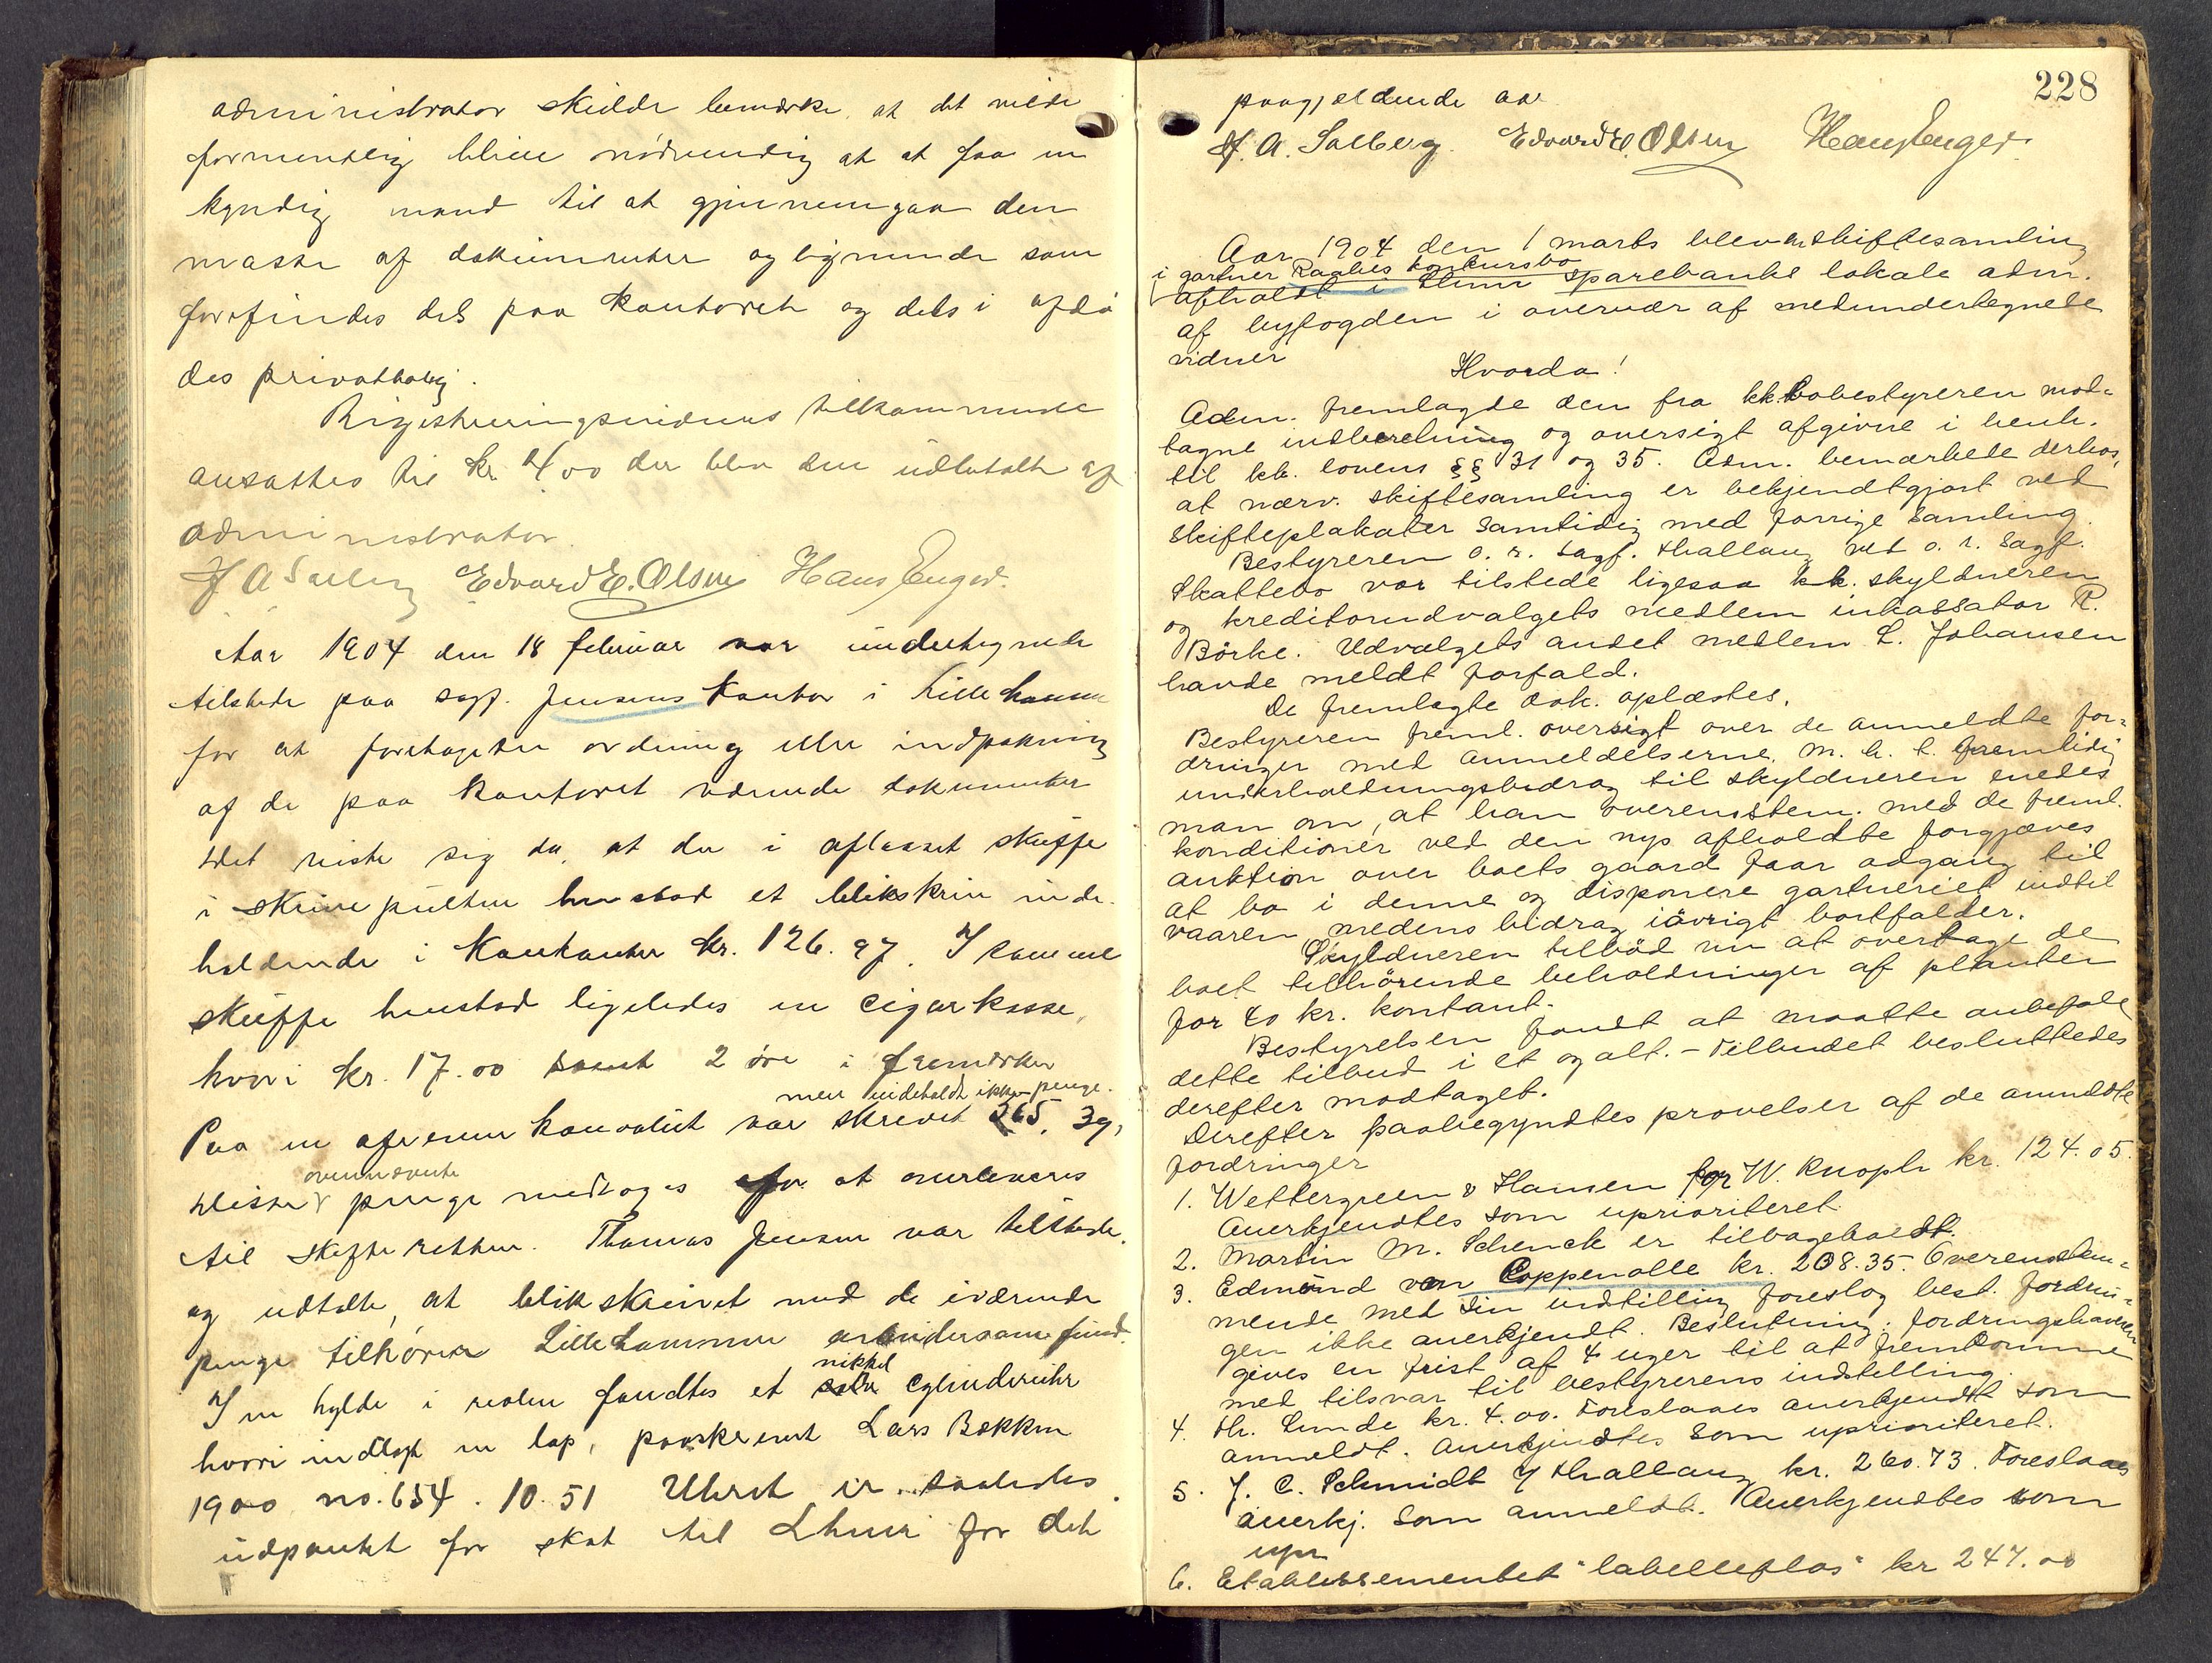 administrator skulde bemærke, at det vilde
formentlig blive nødvendig at at faa en
kyndig mand til at gjennemgaa den
masse af dokumenter og lignende som
forefindes dels paa kontoret og dels i afdø
des privatbolig.
Registreringsvidnernes tilkommende
ansattes til kr. 4.00 der blev dem udbetalt af
administrator.
Edvard E. Olsen Hans Enger.
Aar 1904 den 18 februar var undertegnede
tilstede paa sagf. Jensens kontor i Lillehammer
for at foretage en ordning eller indpakning
af de paa kontoret værende dokumenter
Det viste sig da, at der i aflaaset skuffe
i skrivepulten henstod et blikskrin inde-
holdende i kontanter kr. 126.97. I samme
skuffe henstod ligeledes en cigarkasse,
hvori kr. 17.00 samt 2 øre i frimærker
men indeholdt ikke penge.
Paa en konvolut var skrevet 265.39,
ovennævnte
Disse penge medtoges for at overleveres
til skifteretten. Thomas Jensen var tilstede
og udtalte, at blikskrinet med de iværende
penge tilhører Lillehammer arbeidersamfund.
nikkel
I en hylde i reolen fandtes et cylinderuhr
hvori indlagt en lap, paaskrevet Lars Bakken
1900 no. 654. 10.51 Uhret er saaledes
udpantet for skat til Lhmr for det
228
paagjældende aar
H. A. Salberg. Edvard E. Olsen Hans Enger.
Aar 1904 den 1 marts blev en skiftesamling
i gartner Raabes konkursbo
afholdt i Lhmr sparebanks lokale adm.
af byfogden i overvær af medundertegnede
vidner
Hvorda!
Adm. fremlagde den fra kk.bobestyreren mod-
tagne indberetning og oversigt afgivne i henh.
til kk. lovens §§ 31 og 35. Adm. bemærkede derhos,
at nærv. skiftesamling er bekjendtgjort ved
skifteplakater samtidig med forrige samling.
Bestyreren o. r. sagf. Thallaug ved o. r. sagf.
Skattebo var tilstede ligesaa kk. skyldneren
og kreditorudvalgets medlem inkassator R.
Börke. Udvalgets andet medlem L. Johansen
havde meldt forfald.
De fremlagte dok. oplæstes.
Bestyreren freml. oversigt over de anmeldte for-
dringer med anmeldelserne. M. h. t. fremtidig
underholdningsbidrag til skyldneren enedes
man om, at han overensstem. med de freml.
konditioner ved den nys afholdte forgjæves
auktion over boets gaard faar adgang til
at bo i denne og disponere gartneriet indtil
vaaren medens bidrag iøvrigt bortfalder.
Skyldneren tilböd nu at overtage de
boet tilhörende beholdninger af planter
for 40 kr. kontant.
Bestyrelsen fandt at maatte anbefale
dette tilbud i et og alt. - Tilbudet besluttedes
derefter modtaget.
Derefter paabegyndtes prövelser af de anmeldte
fordringer
1. Wettergreen & Hansen for W. Knoph kr. 124.05.
Anerkjendtes som uprioriteret.
2. Martin M. Schenck er tilbageholdt.
3. Edmond van Coppenolle kr. 208.35. Overensstem-
mende med sin indstilling foreslog best. fordrin-
gen ikke anerkjendt. Beslutning: fordringshaveren
gives en frist af 4 uger til at fremkomme
med tilsvar til bestyrerens indstilling.
4. Th. Lunde kr. 4.00. Foreslaaes anerkjendt som
anmeldt. Anerkjendtes som uprioriteret.
5. J. C. Schmidt v/ Thallaug kr. 260.73. Foreslaaes
anerkj. som anmeldt. Anerkjendtes som
upr
6. Etablissementet "labelleflos" kr 247.00